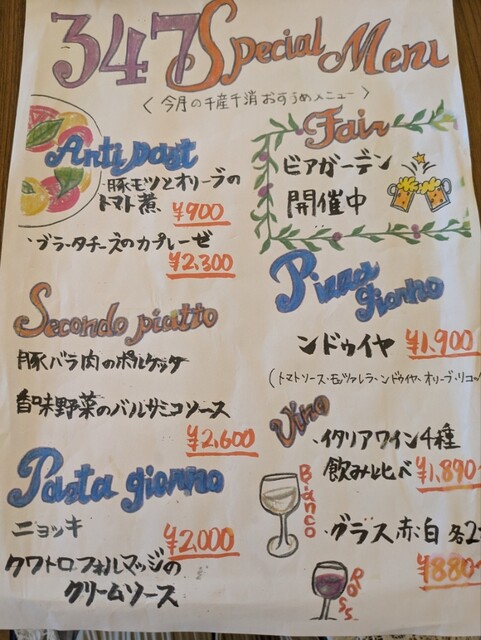 347 Special Menu
〈今月の千産千消おすすめメニュー〉
Antipast
・豚モツとオリーブの
トマト煮 ¥900
・ブラータチーズのカプレーゼ
¥2,300
Secondo piatto
豚バラ肉のポルケッタ
香味野菜のバルサミコソース
¥2,600
Pasta giorno
ニョッキ
¥2,000
クワトロフォルマッジの
クリームソース
Fair
ビアガーデン
開催中
Pizza
giorno
ンドゥイヤ ¥1,900
(トマトソース・モッツァレラ・ンドゥイヤ・オリーブ・リコ
Vino
・イタリアワイン4種
飲み比べ ¥1,890
Bianco
・グラス 赤・白 各2
¥880
Ross